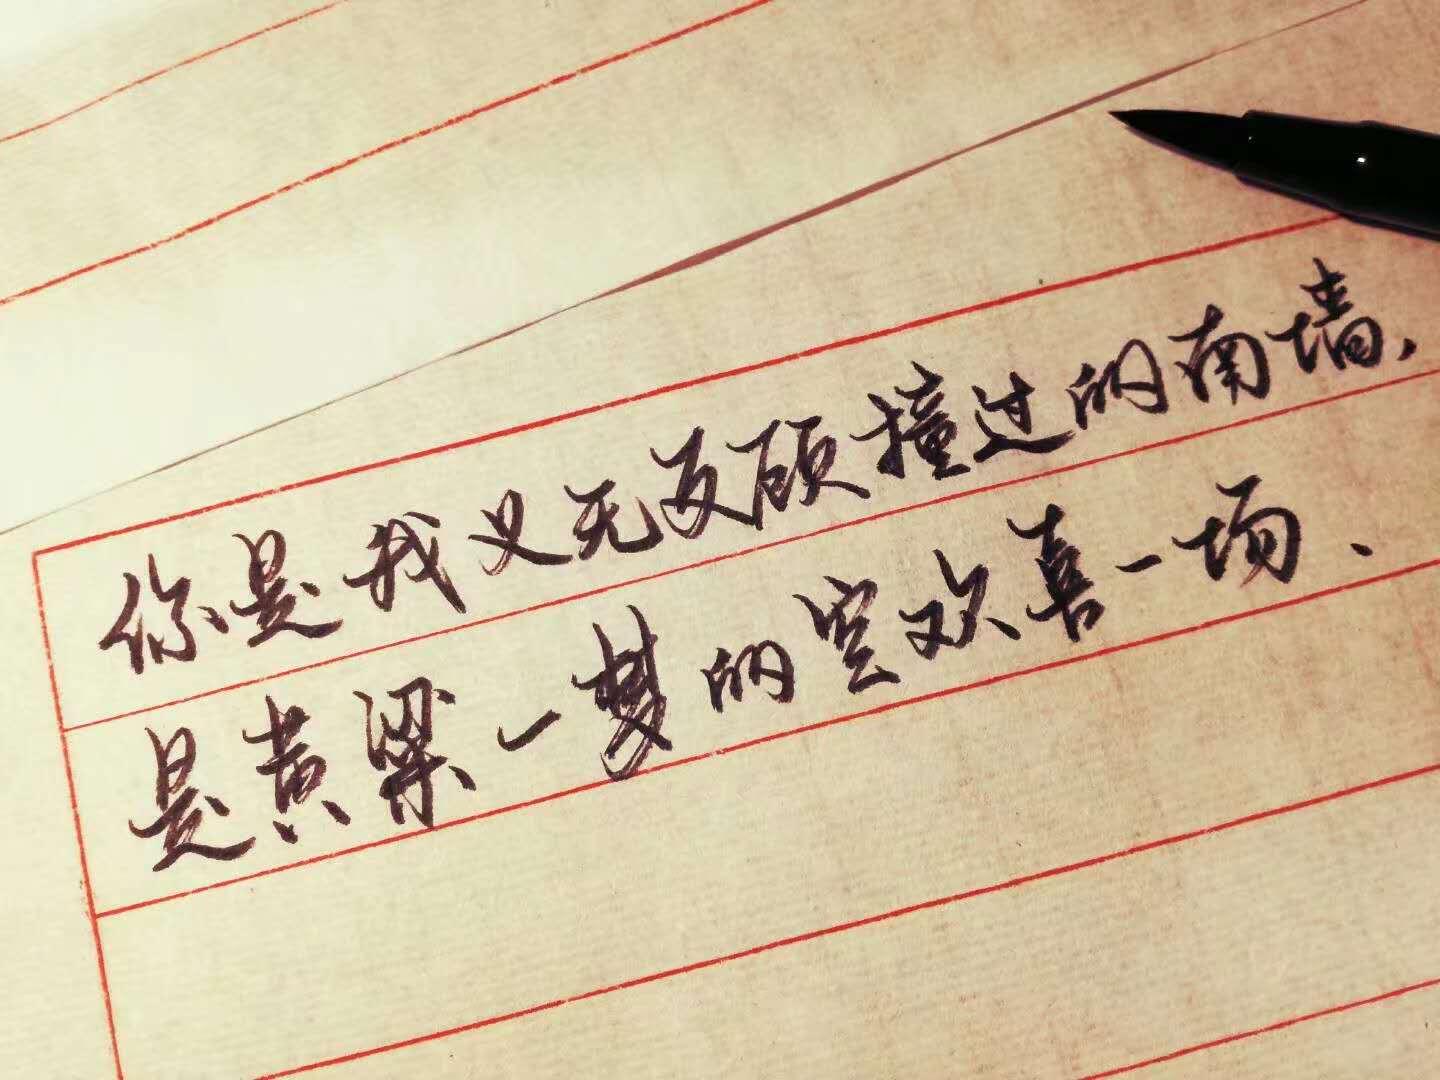 你是我义无反顾撞过的南墙、
是黄粱一梦的空欢喜一场、